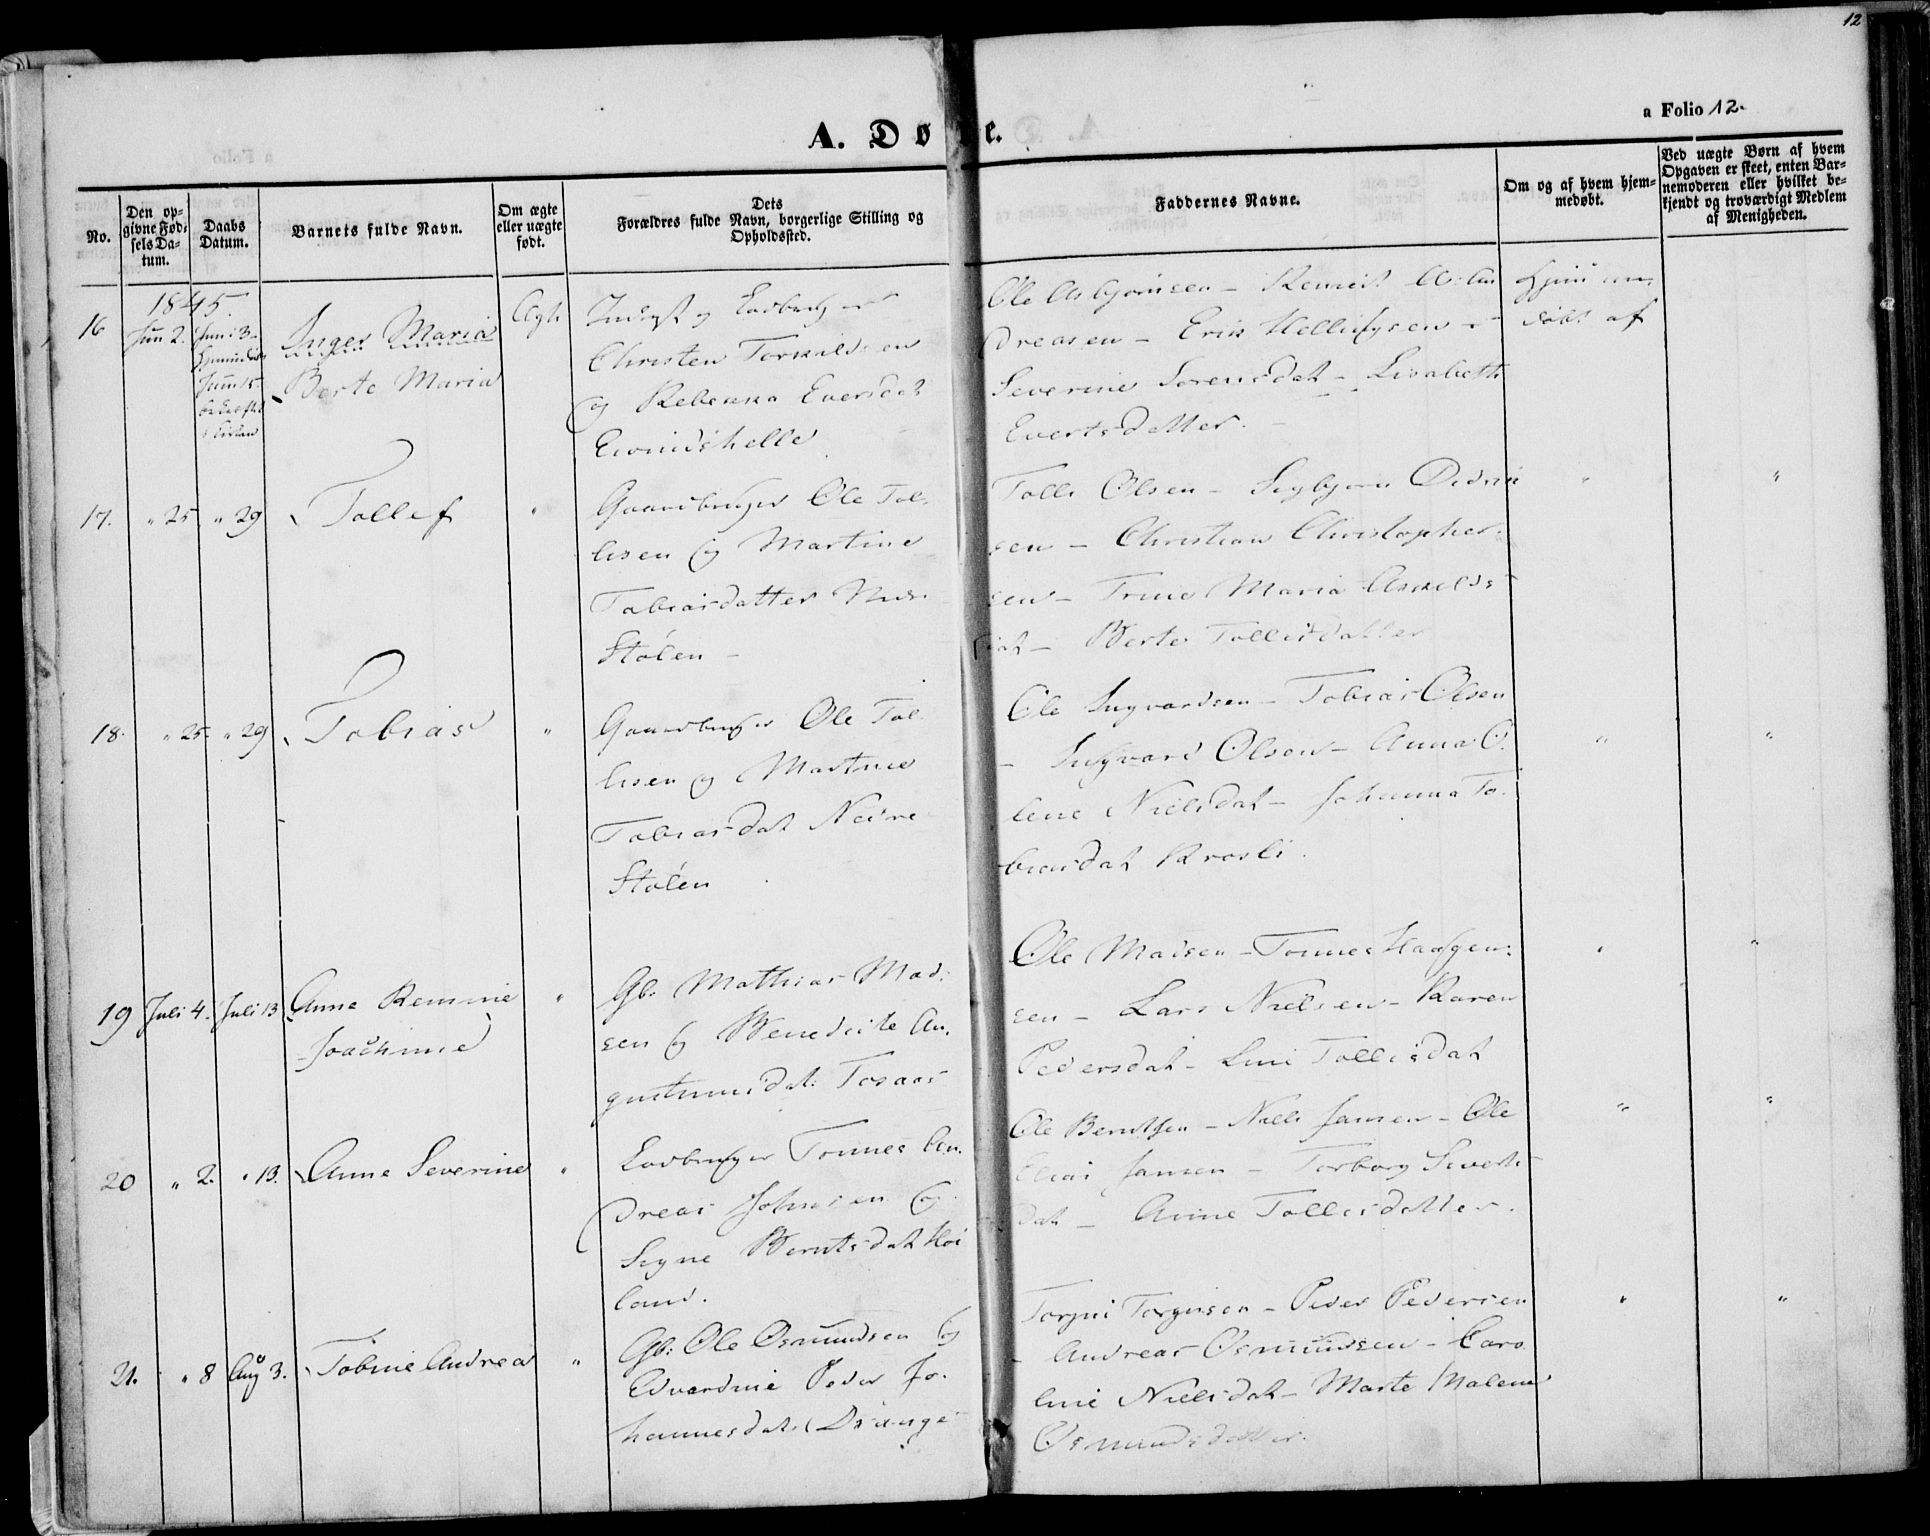 12
a Folio 12.
A. Dø e.
No.
Den op-
givne Fød-
sels Da-
tum.
Daabs
Datum.
Barnets fulde Navn.
Om ægte
eller uægte
født.
Dets
Forældres fulde Navn, borgerlige Stilling og
Opholdssted.
Faddernes Navne.
Om og af hvem hjem-
medøbt.
Ved uægte Børn af hvem
Opgaven er skeet, enten Bar-
nemoderen eller hvilket be-
kjendt og troværdigt Medlem
af Menigheden.
1845.
16
Juni 2.
Juni 3
Juni 15
Inger Maria
Berte Maria
Ægte
Indr og
Christen Torkelssen
og Rebekka Eversdat
Eivindshelle
Ole Asbjørnsen - An
dreasen - Erik Helliesen -
Severine Sørensdat - Lisabeth
Evertsdatter.
Hjem
døbt af
17.
" 25
" 29
Tollef
"
Gaardbruger Ole Tol-
lisen og Martine
Tobiasdatter
Stølen -
Tolli Olsen - Sigbjørn Didrik
sen - Christian Christopher-
sen - Trine Maria Askilds
dat - Berte Tollisdatter
"
"
18.
" 25.
" 29
Tobias
"
Gaardbruger Ole Tol
lisen og Martine
Tobiasdat Nedre
Stølen
Ole Ingvardsen - Tobias Olsen
- Ingvard Olsen - Anna O.
lene Nielsdat - Johanna To-
biasdat Krosli.
"
"
19
Juli 4.
Juli 13
Anne Remine
Joachime
"
Gb: Mathias Mad-
sen og Benedicte Au-
gustinusdat: Tosaas
Ole Madsen - Tønnes Haagen-
sen - Lars Nielsen - Karen
Pedersdat - Line Tollisdat
"
"
20
" 2.
" 13.
Anne Severine
"
Løsbruger Tønnes An-
dreas Johnsen og
Signe Berntsdat Høi
land.
Ole Berntsen - Niels Jansen - Ole
Elias Jansen - Torborg Siverts
dat - Anne Tollisdatter.
"
"
21.
" 8
Aug 3.
Tobine Andrea
"
Gb: Ole Osmundsen og
Edvardine Peder Jo-
hannesdat: Drange
Torjus Torjusen - Peder Pedersen
- Andreas Osmundsen - Caro
line Nielsdat - Marte Malene
Osmundsdatter.
"
"